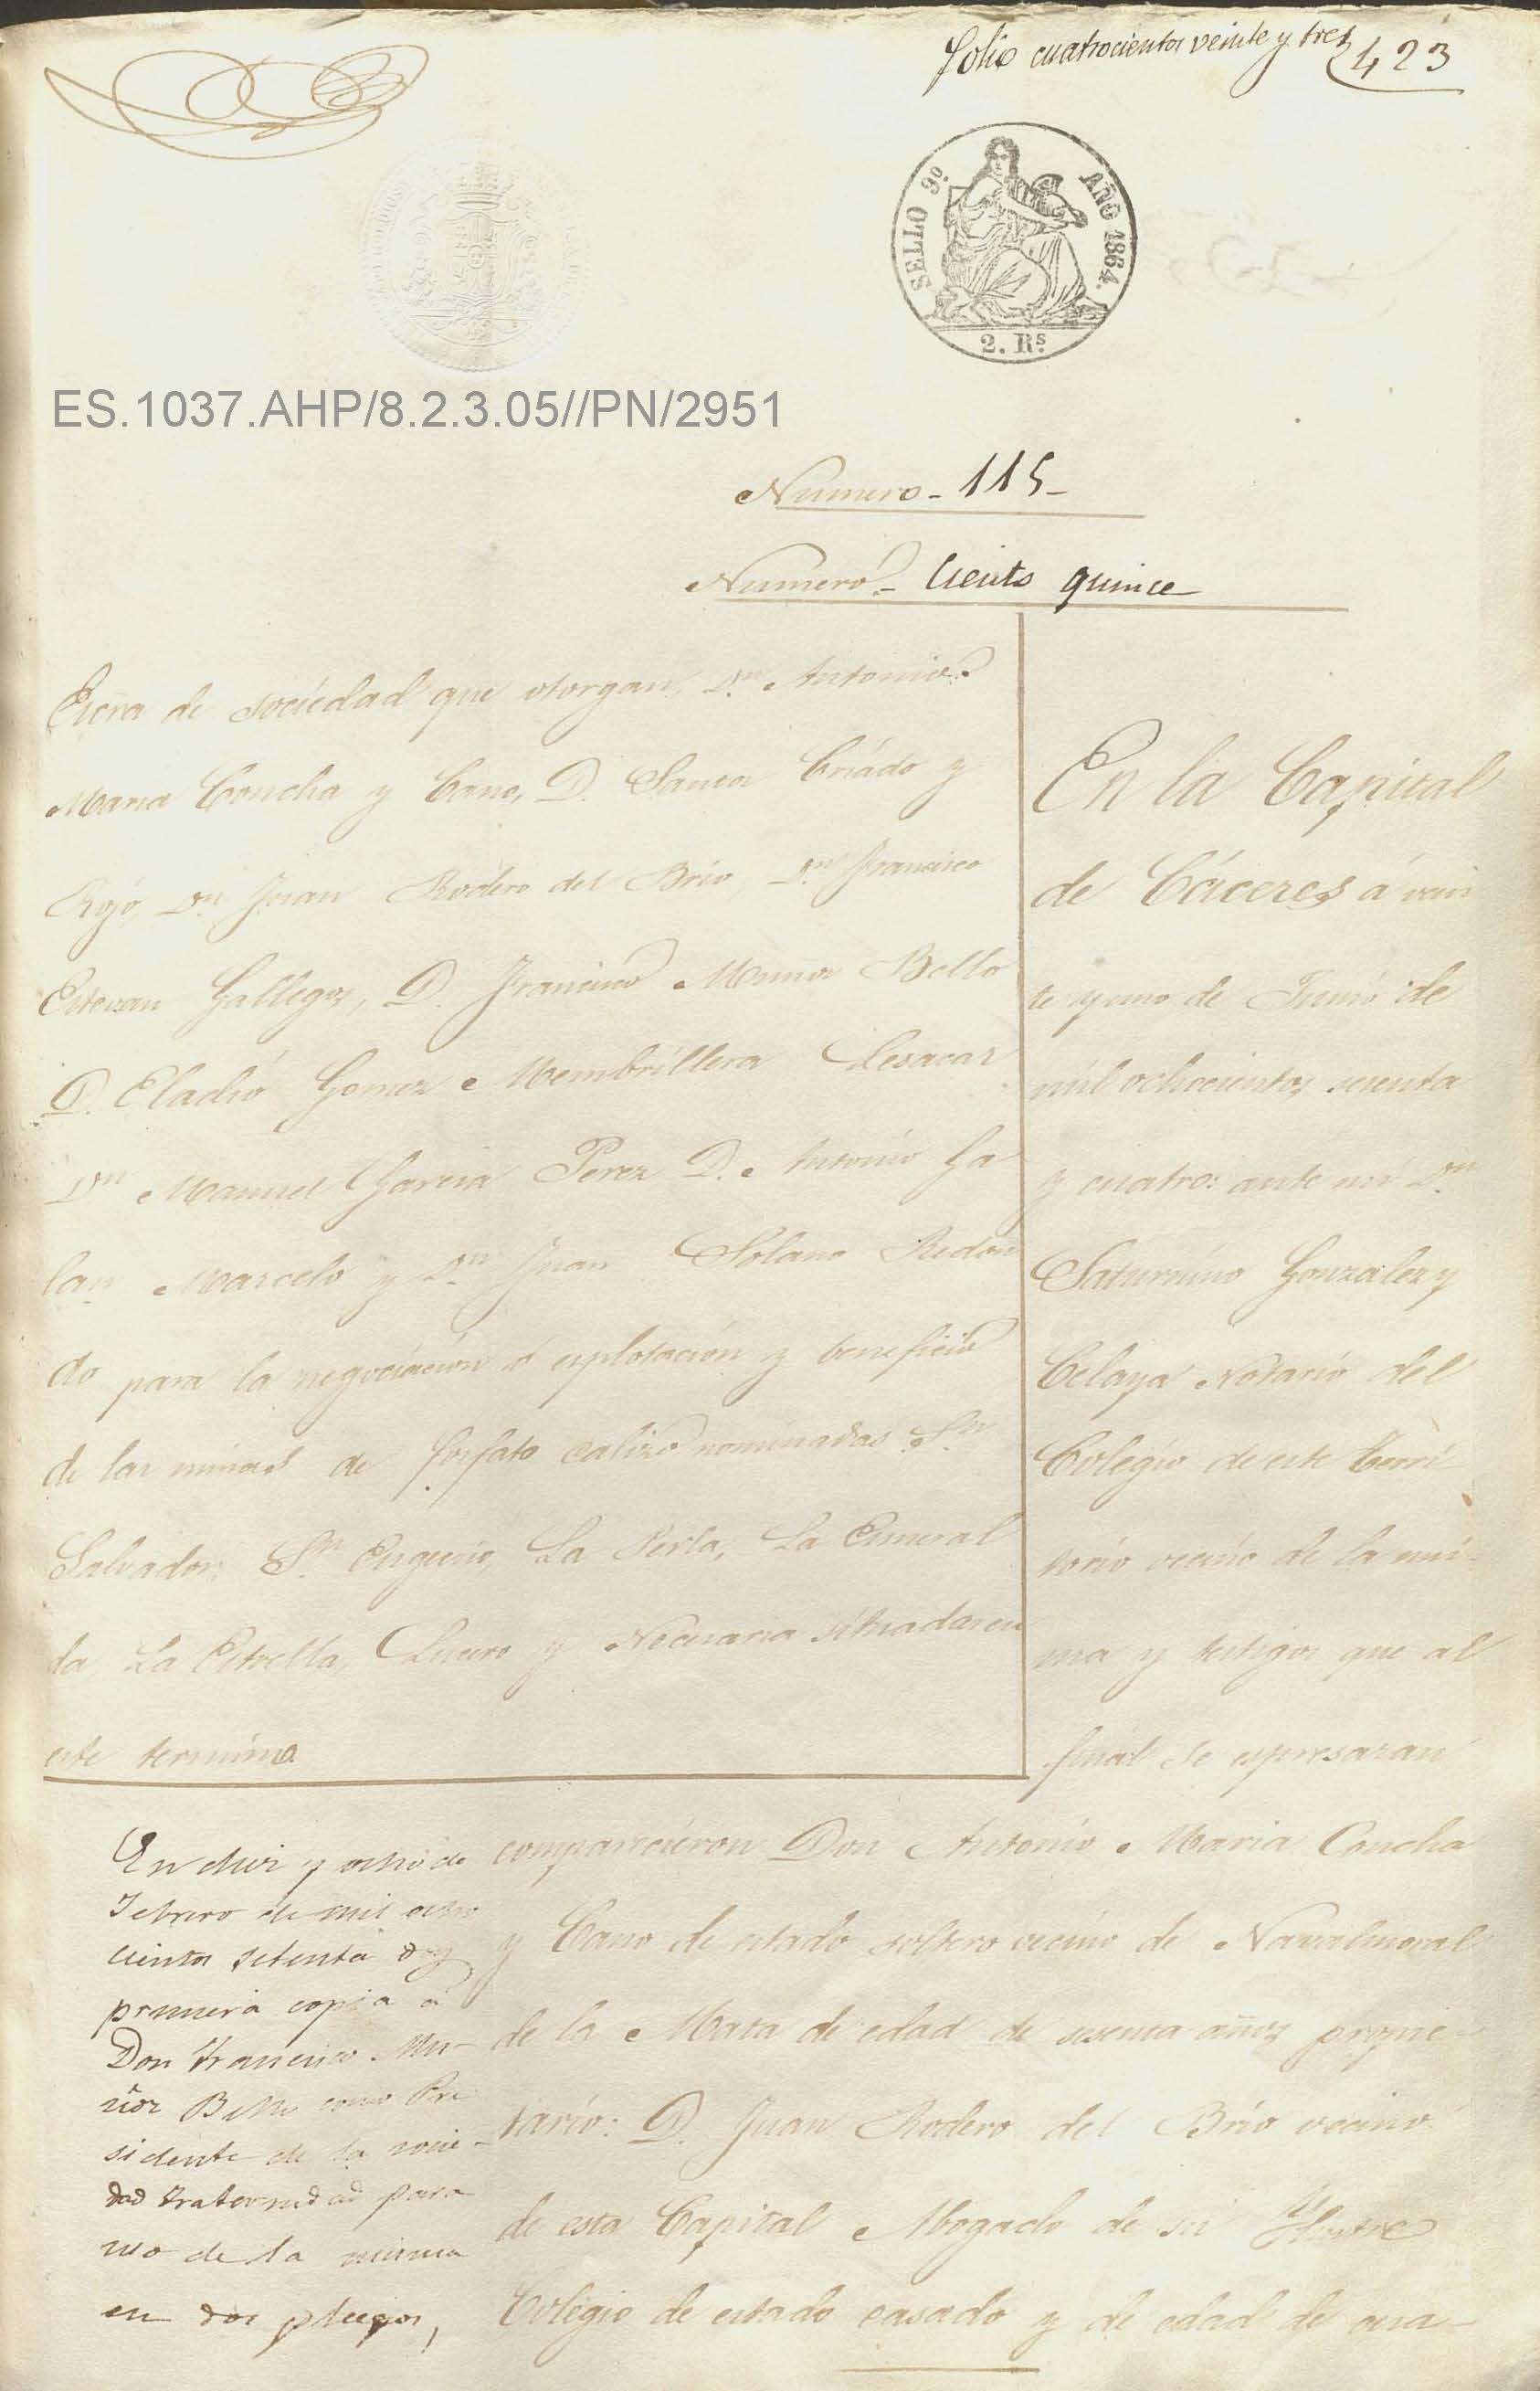 folio cuatrocientos veinte y tres 423
SELLO 9º. AÑO 1864.
2. Rs.
ES.1037.AHP/8.2.3.05//PN/2951
Numero - 115 -
Numero - Ciento quince
Escra de sociedad que otorgan, Dn Antonio
Maria Concha y Cano, D. Santos Criado y
Rojo, Dn Juan Rodero del Brio, Dn Francisco
Estevan Gallegos, D. Francisco Munoz Bello
D. Eladio Gomez Membrillera
Dn Manuel Garcia Perez D. Antonio Ga
lan Marcelo y Dn Juan Solano Redon
do para la negociacion ó esplotacion y beneficio
de las minas de fosfato calizo nominadas Sn
Salvador, Sn Eugenio, La Perla, La Esmeral
da, La Estrella, Lucero y Necesaria situadas en
este termino
En la Capital
de Cáceres á vein
te y uno de Junio de
mil ochocientos sesenta
y cuatro: ante mi Dn
Saturnino Gonzalez y
Celaya Notario del
Colegio de este Terri
torio vecino de la mis
ma y testigos que al
final se espresaran
comparecieron Don Antonio Maria Concha
y Cano de estado soltero vecino de Navalmoral
de la Mata de edad de sesenta años propie-
tario: D. Juan Rodero del Brio vecino
de esta Capital Abogado de su Ylustre
Colegio de estado casado y de edad de cua-
En diez y ocho de
Febrero de mil ocho
cientos setenta dí
primera copia á
Don Francisco Mu-
ñoz Bello como Pre
sidente de la socie-
dad Fraternidad para
uso de la misma
en dos pliegos,